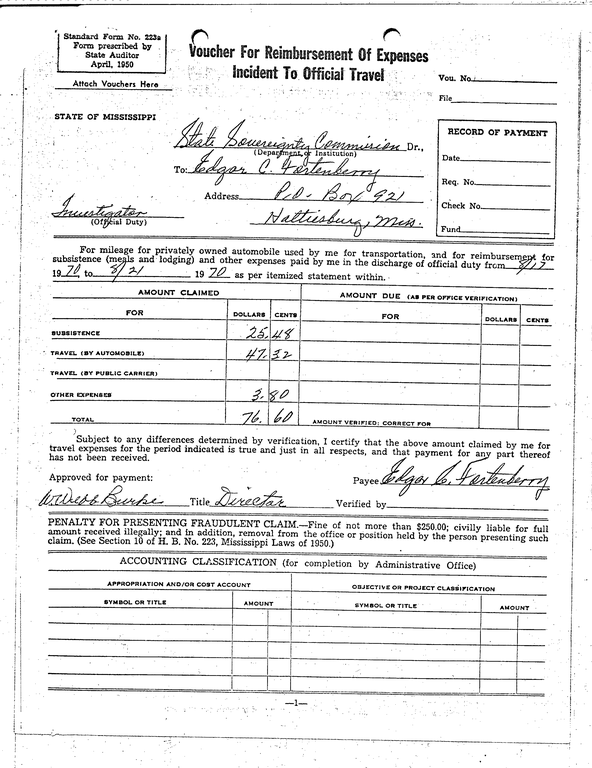 Standard Form No. 223a
Form prescribed by
State Auditor
April, 1950
Attach Vouchers Here
Voucher For Reimbursement Of Expenses
Incident To Official Travel
Vou. No.
File
STATE OF MISSISSIPPI
State Sovereignty Commission Dr.,
(Department or Institution)
To: Edgar C. Fortenberry
Address P.O. Box 921
Hattiesburg, Miss.
Investigator
(Official Duty)
RECORD OF PAYMENT
Date
Req. No.
Check No.
Fund
For mileage for privately owned automobile used by me for transportation, and for reimbursement for
subsistence (meals and lodging) and other expenses paid by me in the discharge of official duty from 8/17
1970 to 8/21 1970 as per itemized statement within.
AMOUNT CLAIMED AMOUNT DUE (AS PER OFFICE VERIFICATION)
FOR DOLLARS CENTS FOR DOLLARS CENTS
SUBSISTENCE 25.48
TRAVEL (BY AUTOMOBILE) 47.32
TRAVEL (BY PUBLIC CARRIER)
OTHER EXPENSES 3.80
TOTAL 76.60 AMOUNT VERIFIED; CORRECT FOR
Subject to any differences determined by verification, I certify that the above amount claimed by me for
travel expenses for the period indicated is true and just in all respects, and that payment for any part thereof
has not been received.
Approved for payment: Payee Edgar C. Fortenberry
W. Webb Burke Title Director Verified by
PENALTY FOR PRESENTING FRAUDULENT CLAIM.—Fine of not more than $250.00; civilly liable for full
amount received illegally; and in addition, removal from the office or position held by the person presenting such
claim. (See Section 10 of H. B. No. 223, Mississippi Laws of 1950.)
ACCOUNTING CLASSIFICATION (for completion by Administrative Office)
APPROPRIATION AND/OR COST ACCOUNT OBJECTIVE OR PROJECT CLASSIFICATION
SYMBOL OR TITLE AMOUNT SYMBOL OR TITLE AMOUNT
—1—